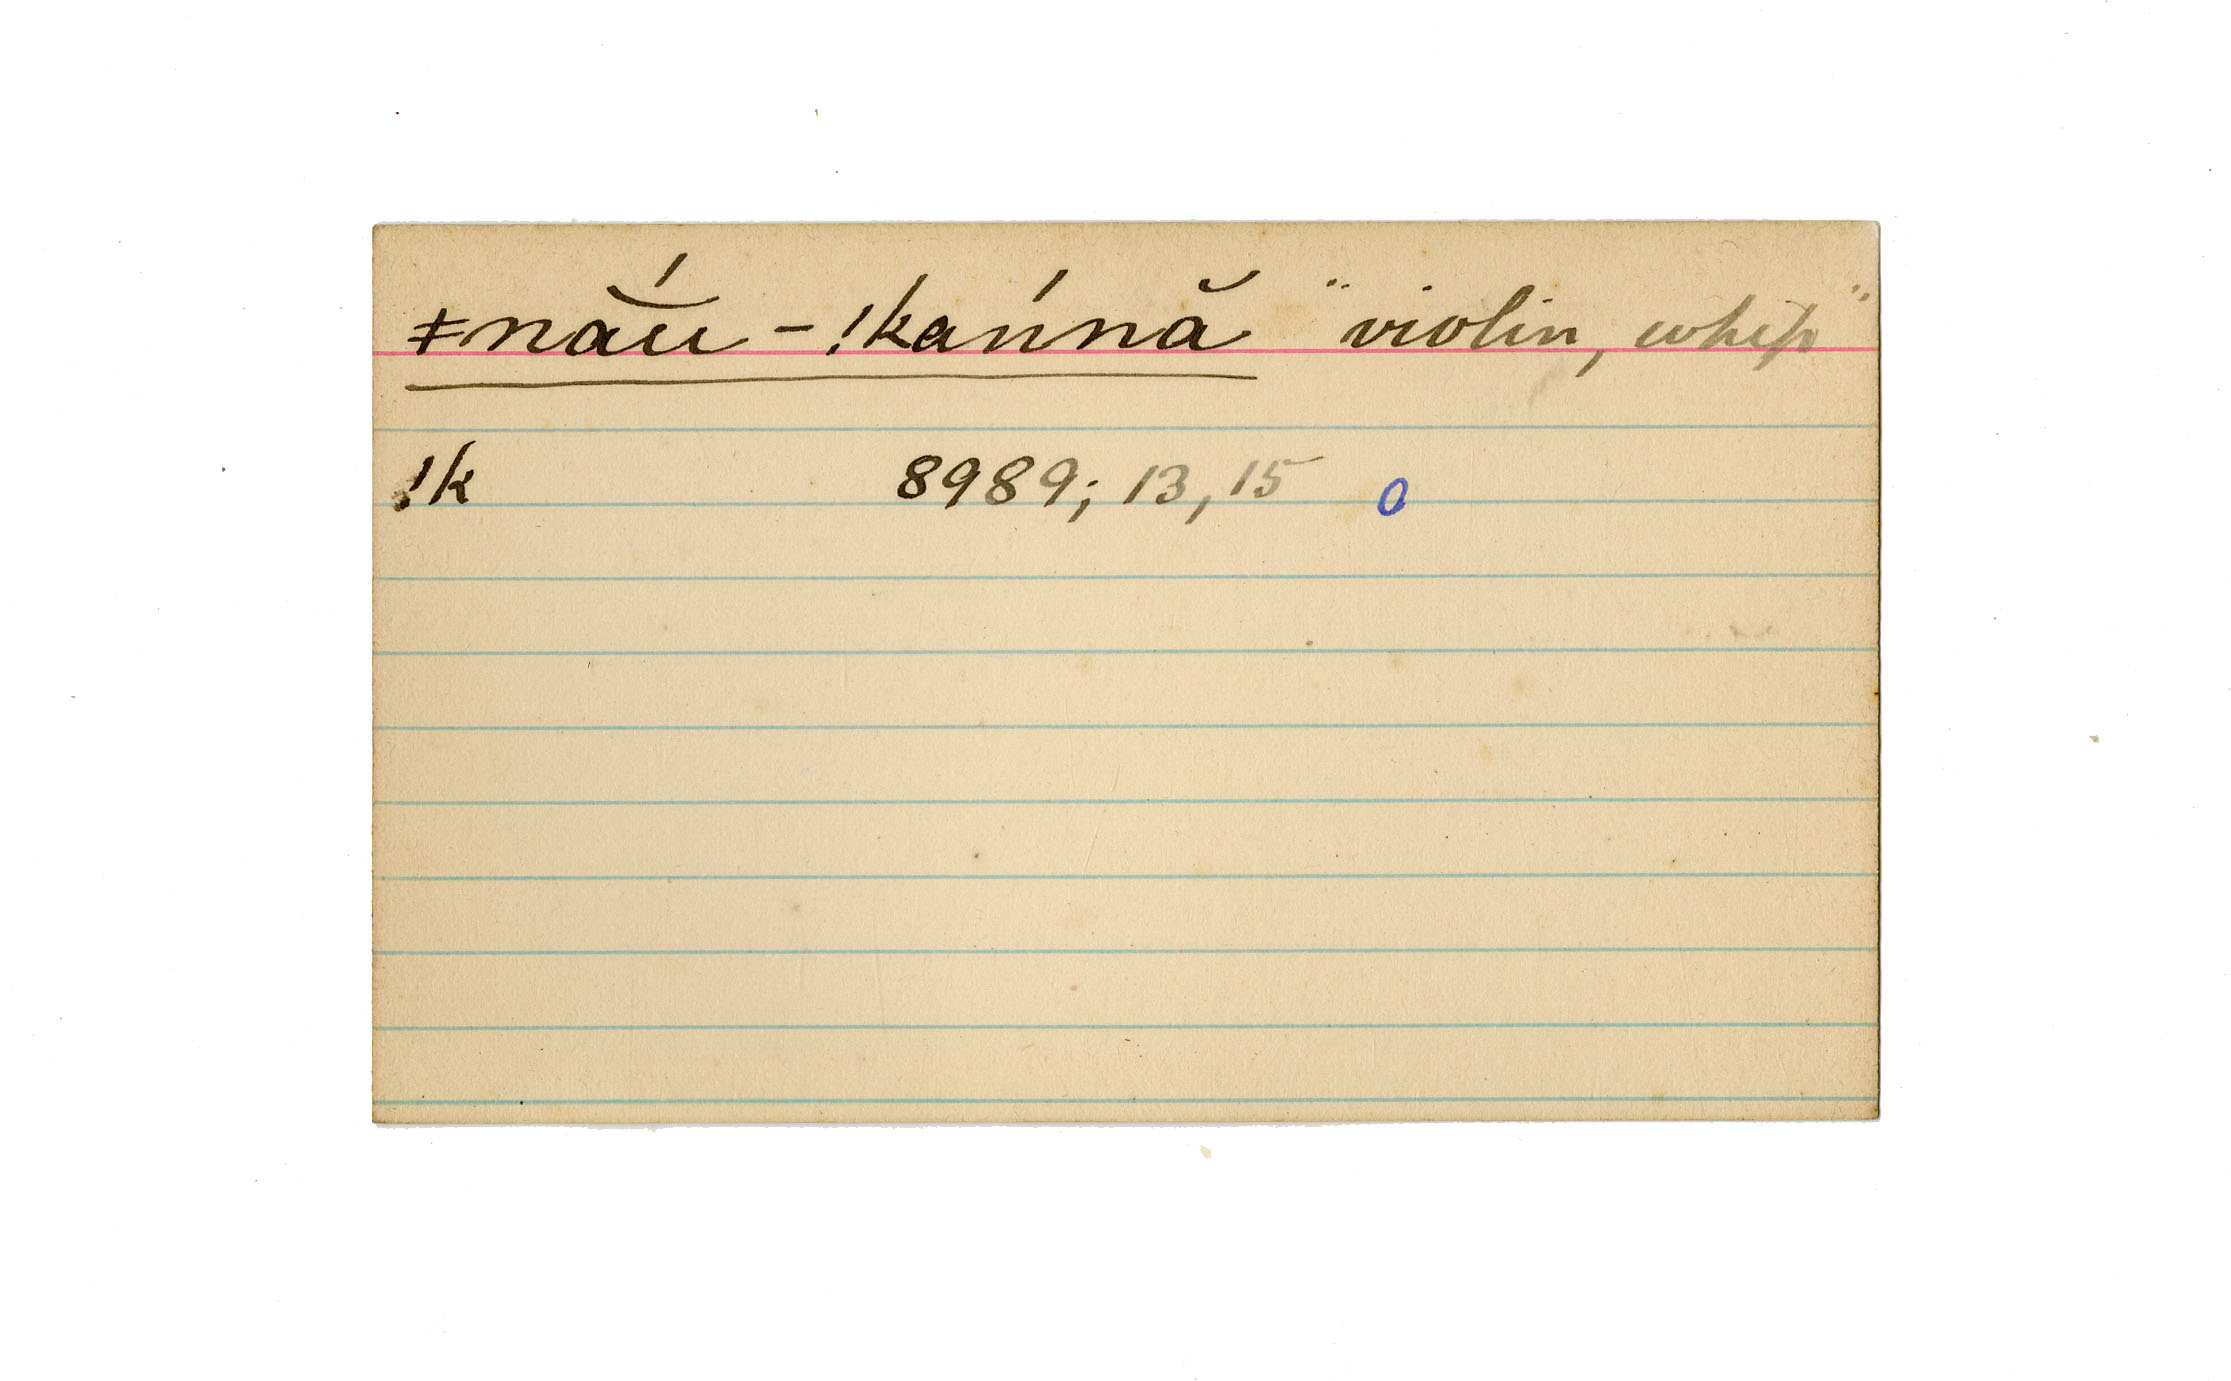 ǂnăú̯ - !kańnă "violin, whip"
!k 8989; 13, 15 o